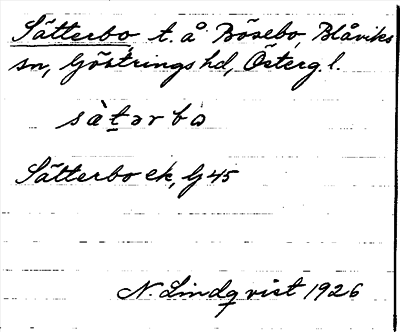 Sätterbo t. å Bösebo, Blåviks
sn, Göstrings hd, Österg.l.
sàt̠ərbo
Sätterbo ek, G 45
N. Lindqvist 1926